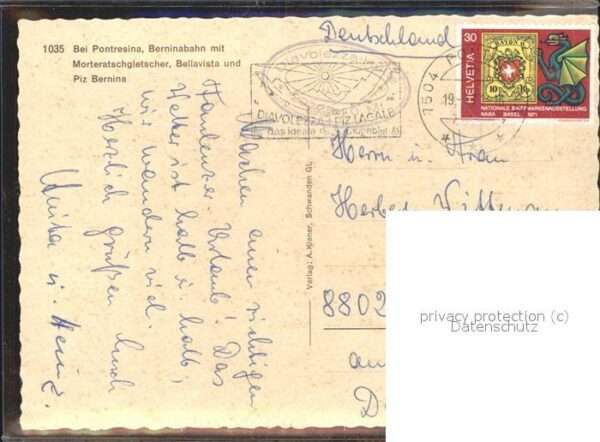 1035 Bei Pontresina, Berninabahn mit
Morteratschgletscher, Bellavista und
Piz Bernina
Machen einen richtigen
Urlaub! Das
Wetter ist halb u. halb,
wir wandern viel.
Herzlich grüßen Euch
Anita u. Heinz.
Verlag: A. Kjoner, Schwanden GL
Deutschland
DIAVOLEZZA PIZ LAGALB
das ideale
7504
19
30
HELVETIA
BAYON II
10 10
NATIONALE BRIEFMARKENAUSSTELLUNG
NABA BASEL 1971
Herrn u. Frau
Herbert
8802
an
privacy protection (c)
Datenschutz